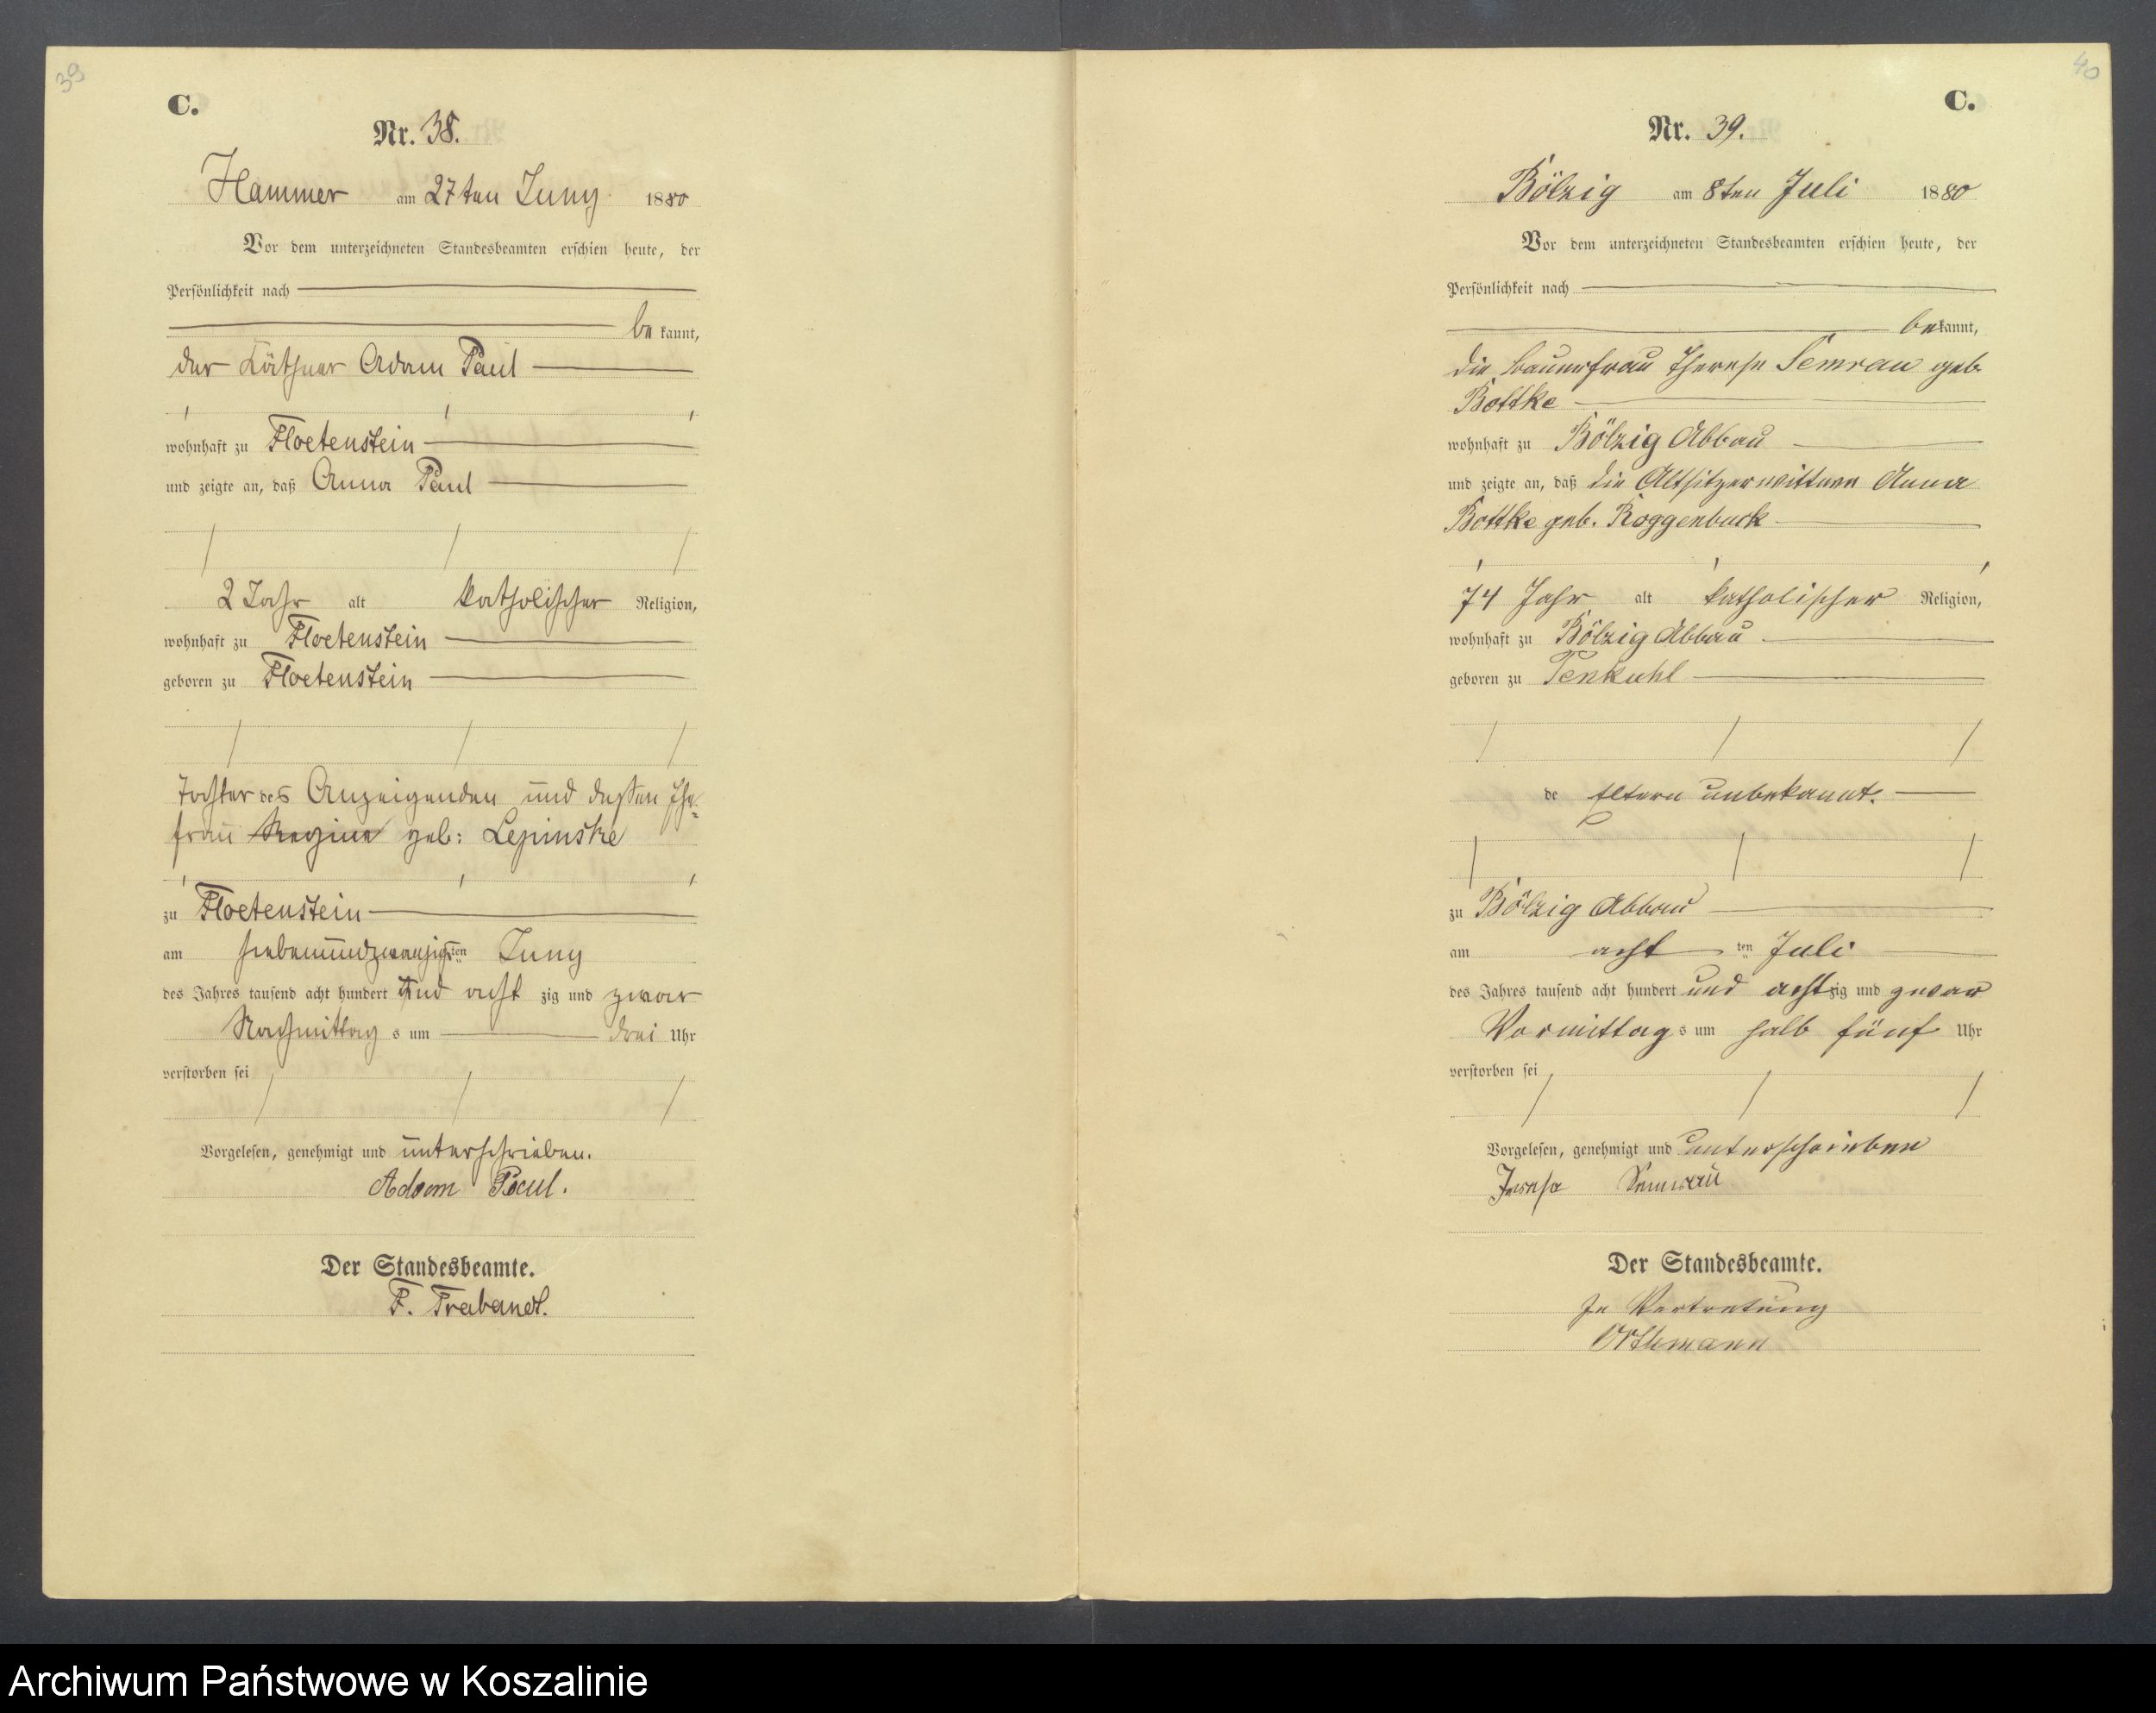 39
C.
Nr. 38.
Hammer am 27ten Juny 1880
Vor dem unterzeichneten Standesbeamten erschien heute, der
Persönlichkeit nach
be kannt,
der Käthner Adam Paul
wohnhaft zu Floetenstein
und zeigte an, daß Anna Paul
2 Jahr alt katholischer Religion,
wohnhaft zu Floetenstein
geboren zu Floetenstein
Tochter des Anzeigenden und deßen Ehe-
frau Regina geb: Lepinske
zu Floetenstein
am siebenundzwanzigsten Juny
des Jahres tausend acht hundert und acht zig und zwar
Nachmittag s um drei Uhr
verstorben sei
Vorgelesen, genehmigt und unterschrieben.
Adam Paul.
Der Standesbeamte.
F. Trabandt.
40
C.
Nr. 39.
Bölzig am 8ten Juli 1880
Vor dem unterzeichneten Standesbeamten erschien heute, der
Persönlichkeit nach
bekannt,
die Bauerfrau Therese Semrau geb.
Bottke
wohnhaft zu Bölzig Abbau
und zeigte an, daß die Altsitzerwittwe Anna
Bottke geb. Roggenbuck
74 Jahr alt katholischer Religion,
wohnhaft zu Bölzig Abbau
geboren zu Penkuhl
de Eltern unbekannt.
zu Bölzig Abbau
am acht ten Juli
des Jahres tausend acht hundert und achtzig und zwar
Vormittag s um halb fünf Uhr
verstorben sei
Vorgelesen, genehmigt und unterschrieben
Semrau
Der Standesbeamte.
In Vertretung
Orthmann
Archiwum Państwowe w Koszalinie